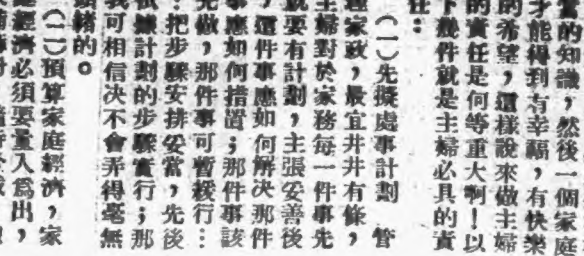 當的知識，然後一個家庭
才能得到有幸福，有快樂
的希望，這樣說來做主婦
的責任是何等重大啊！以
下幾件就是主婦必具的責
任：
（一）先擬處事計劃　管
理家政，最宜井井有條，
主婦對於家務每一件事先
就要有計劃，主張妥善後
，這件事應如何解決那件
事應如何措置；那件事該
先做，那件事可暫緩行…
…把步驟安排妥當，先後
依據計劃的步驟實行；那
我可相信決不會弄得毫無
頭緒的。
（二）預算家庭經濟，家
庭經濟必須要量入爲出，